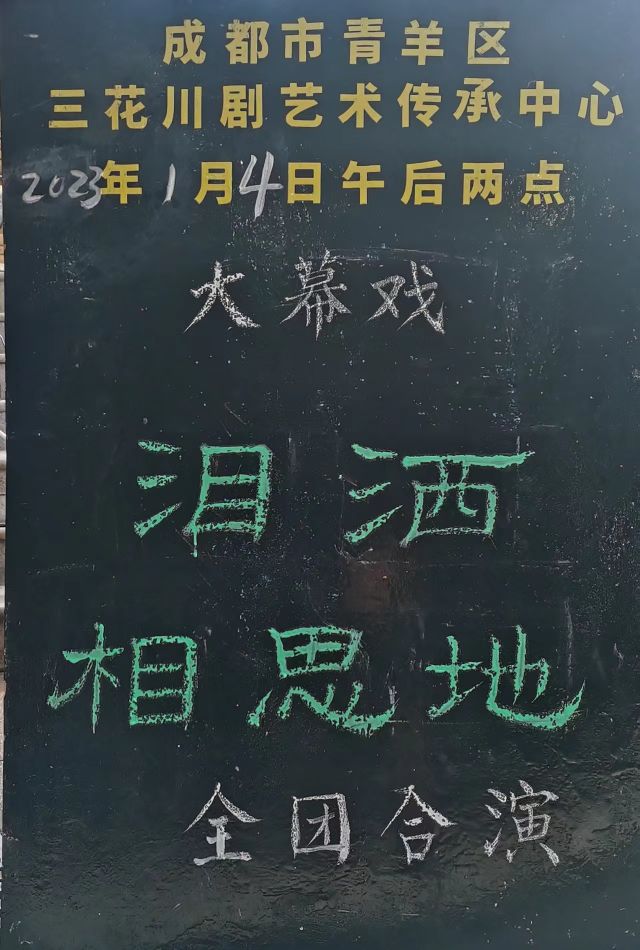 成都市青羊区
三花川剧艺术传承中心
2023年1月4日午后两点
大幕戏
泪洒
相思地
全团合演